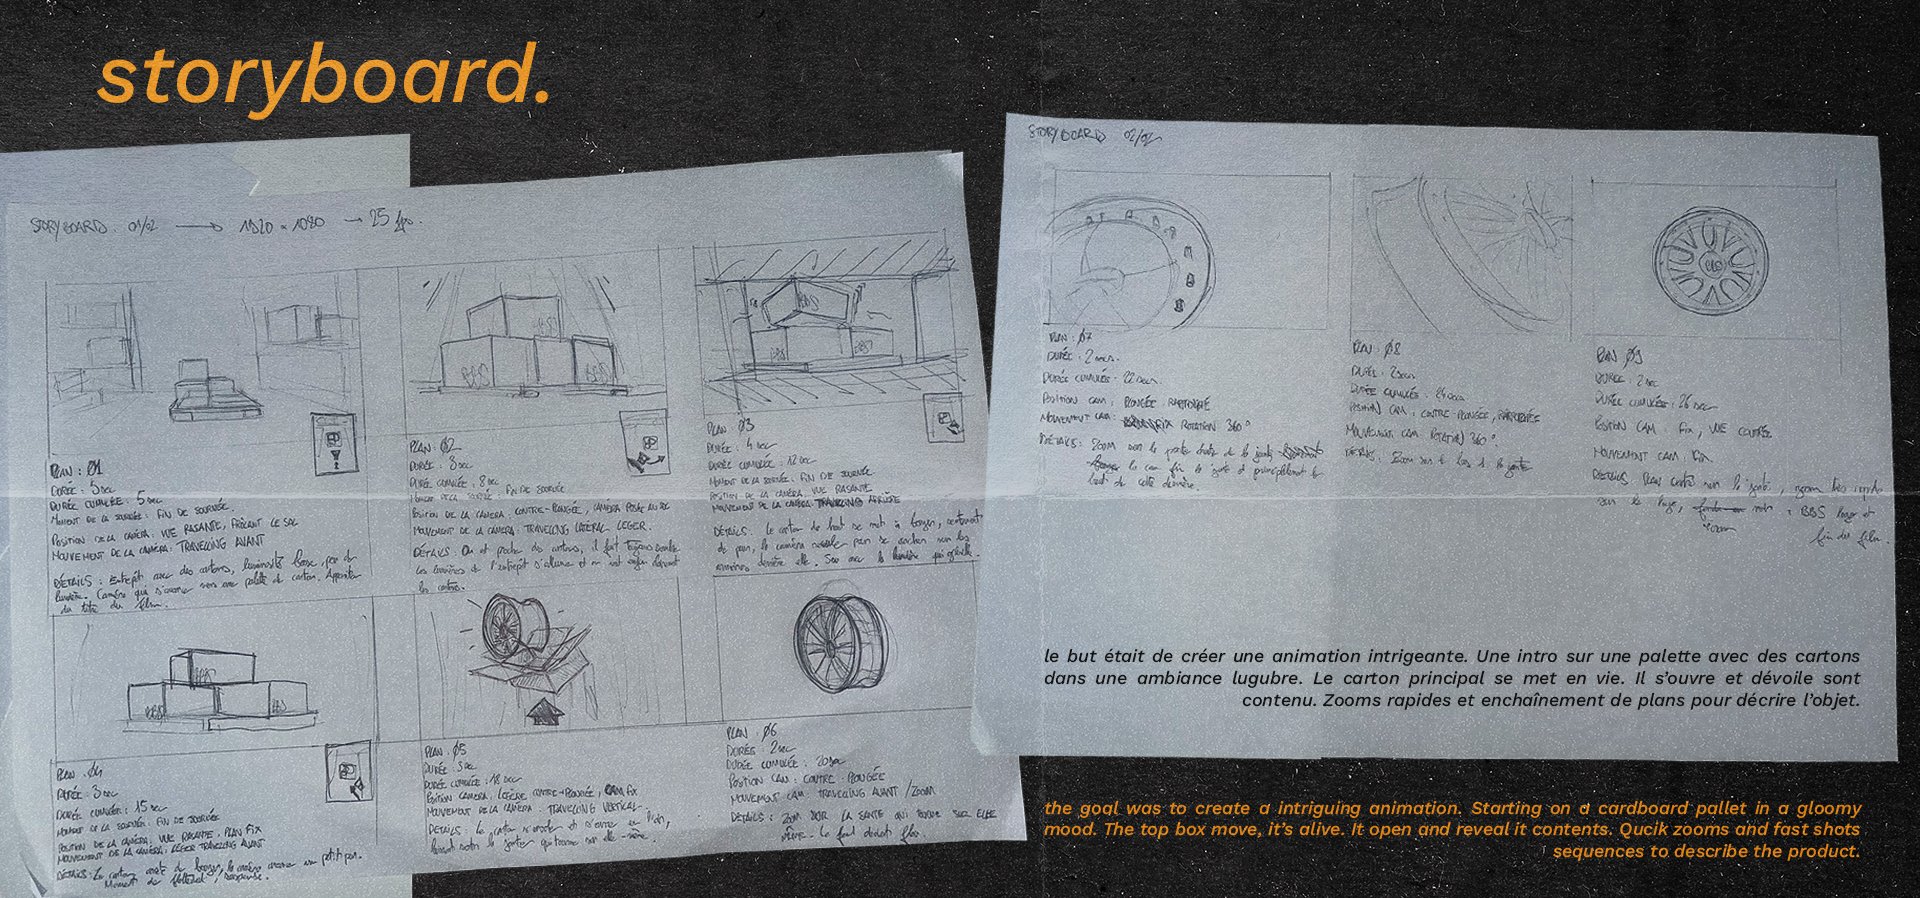 storyboard.
STORYBOARD 01/02 → 1920 × 1080 → 25 fps.
BBS
BBS
BBS
BBS
BBS
BBS
PLAN : Ø1
DURÉE : 5 sec
DURÉE CUMULÉE : 5 sec
MOMENT DE LA JOURNÉE : FIN DE JOURNÉE.
POSITION DE LA CAMÉRA : VUE RASANTE, FRÔLANT LE SOL
MOUVEMENT DE LA CAMÉRA : TRAVELLING AVANT
DÉTAILS : Entrepôt avec des cartons, luminosité basse, peu de
lumière. Caméra qui s'avance vers une palette de carton. Apparition
du titre du film.
PLAN : Ø2
DURÉE : 3 sec
DURÉE CUMULÉE : 8 sec
MOMENT DE LA JOURNÉE : FIN DE JOURNÉE
POSITION DE LA CAMÉRA : CONTRE-PLONGÉE, CAMÉRA POSÉE AU SOL
MOUVEMENT DE LA CAMÉRA : TRAVELLING LATÉRAL LÉGER.
DÉTAILS : On est proche des cartons, il fait toujours sombre
les lumières de l'entrepôt s'allume et on voit
les cartons.
PLAN Ø3
DURÉE : 4 sec
DURÉE CUMULÉE : 12 sec
MOMENT DE LA JOURNÉE : FIN DE JOURNÉE
POSITION DE LA CAMÉRA : VUE RASANTE
MOUVEMENT DE LA CAMÉRA TRAVELLING ARRIÈRE
DÉTAILS : Le carton du haut se met à bouger,
de peur, la caméra recule par se cacher sous les
armoires derrière elle. Son avec la lumière qui grésille.
BBS
BBS
BBS
PLAN : Ø4
DURÉE : 3 sec
DURÉE CUMULÉE : 15 sec
MOMENT DE LA JOURNÉE : FIN DE JOURNÉE
POSITION DE LA CAMÉRA : VUE RASANTE, PLAN FIX
MOUVEMENT DE LA CAMÉRA : LÉGER TRAVELLING AVANT
DÉTAILS : Le carton arrête de bouger, la caméra avance un petit peu.
Moment de flottement, suspense.
PLAN : Ø5
DURÉE : 3 sec
DURÉE CUMULÉE : 18 sec
POSITION CAMÉRA : LÉGÈRE CONTRE-PLONGÉE, CAM FIX
MOUVEMENT DE LA CAMÉRA : TRAVELLING VERTICAL
DÉTAILS : Le carton et s'ouvre
laissant sortir la jante qui tourne sur elle-même.
PLAN : Ø6
DURÉE : 2 sec
DURÉE CUMULÉE : 20 sec
POSITION CAM : CONTRE-PLONGÉE
MOUVEMENT CAM : TRAVELLING AVANT / ZOOM
DÉTAILS : ZOOM SUR LA JANTE QUI TOURNE SUR ELLE
même. Le fond devient flou.
STORYBOARD 02/02
BBS
PLAN : Ø7
DURÉE : 2 sec.
DURÉE CUMULÉE : 22 sec.
POSITION CAM : PLONGÉE RAPPROCHÉE
MOUVEMENT CAM : FIX ROTATION 360°
DÉTAILS : Zoom sur la partie droite de la jante
la cam fix la jante et principalement le
haut de cette dernière.
PLAN : Ø8
DURÉE : 2 sec
DURÉE CUMULÉE : 24 sec
POSITION CAM : CONTRE-PLONGÉE, RAPPROCHÉE
MOUVEMENT CAM ROTATION 360°.
DÉTAILS : Zoom sur le bas de la jante
PLAN Ø9
DURÉE : 2 sec
DURÉE CUMULÉE : 26 sec
POSITION CAM : FIX, VUE CENTRÉE
MOUVEMENT CAM : FIX.
DÉTAILS PLAN centré sur la jante, zoom très rapide
sur le logo, BBS logo et
fin du film.
le but était de créer une animation intrigeante. Une intro sur une palette avec des cartons
dans une ambiance lugubre. Le carton principal se met en vie. Il s'ouvre et dévoile sont
contenu. Zooms rapides et enchaînement de plans pour décrire l'objet.
the goal was to create a intriguing animation. Starting on a cardboard pallet in a gloomy
mood. The top box move, it's alive. It open and reveal it contents. Qucik zooms and fast shots
sequences to describe the product.